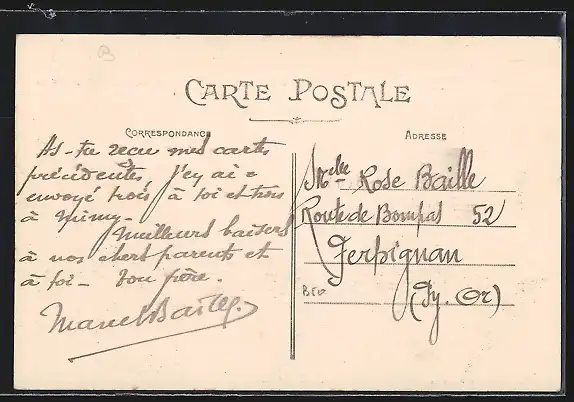 CARTE POSTALE
CORRESPONDANCE
As-tu reçu mes cartes
précédentes J'ey ai
envoyé trois à toi et trois
à Mimy-
Meilleurs baisers
à nos chers parents et
à toi - ton frère.
Marcel Baille
ADRESSE
Melle Rose Baille
Route de Bompas 52
Perpignan
(Py. Or)